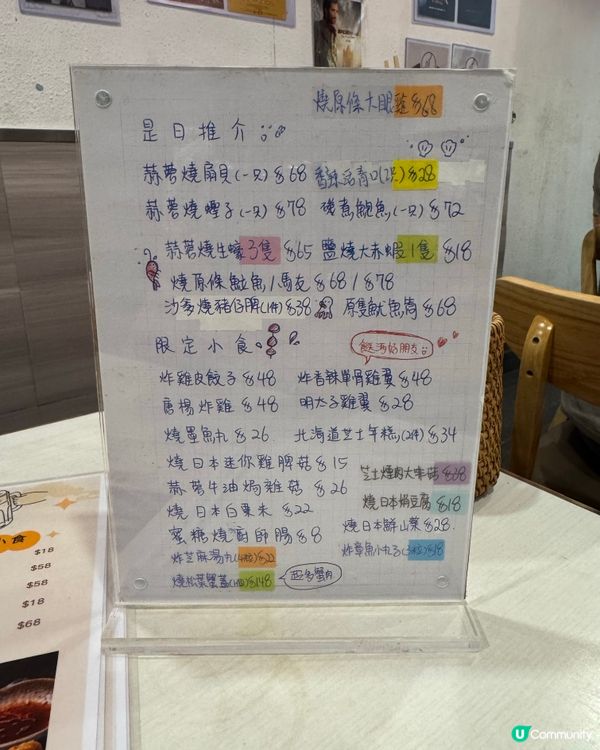 燒原條大眼雞 $68
是日推介
蒜蓉燒扇貝(一只) $68 香辣活青口(2只) $28
蒜蓉燒蟶子(一只) $78 磯煮鮑魚(一只) $72
蒜蓉燒生蠔3隻 $65 鹽燒大赤蝦1隻 $18
燒原條魷魚/馬友 $68/$78
沙多燒豬仔腸(1件) $38 原隻魷魚筒 $68
限定小食
餸酒好朋友
炸雞皮餃子 $48 炸香辣單骨雞翼 $48
唐揚炸雞 $48 明太子雞翼 $28
燒墨魚丸 $26 北海道芝士年糕(2件) $34
燒日本迷你雞脾菇 $15
芝士煙肉大啡菇 $38
蒜蓉牛油焗雜菇 $26
燒日本絹豆腐 $18
燒日本白粟米 $22
燒日本鮮山藥 $28
蜜糖燒廚師腸 $8
炸芝麻湯丸(4粒) $22
炸章魚小丸子(3粒) $18
燒松葉蟹蓋(1個) $148
超多蟹肉
小食
$18
$58
$58
$18
$68
U Community